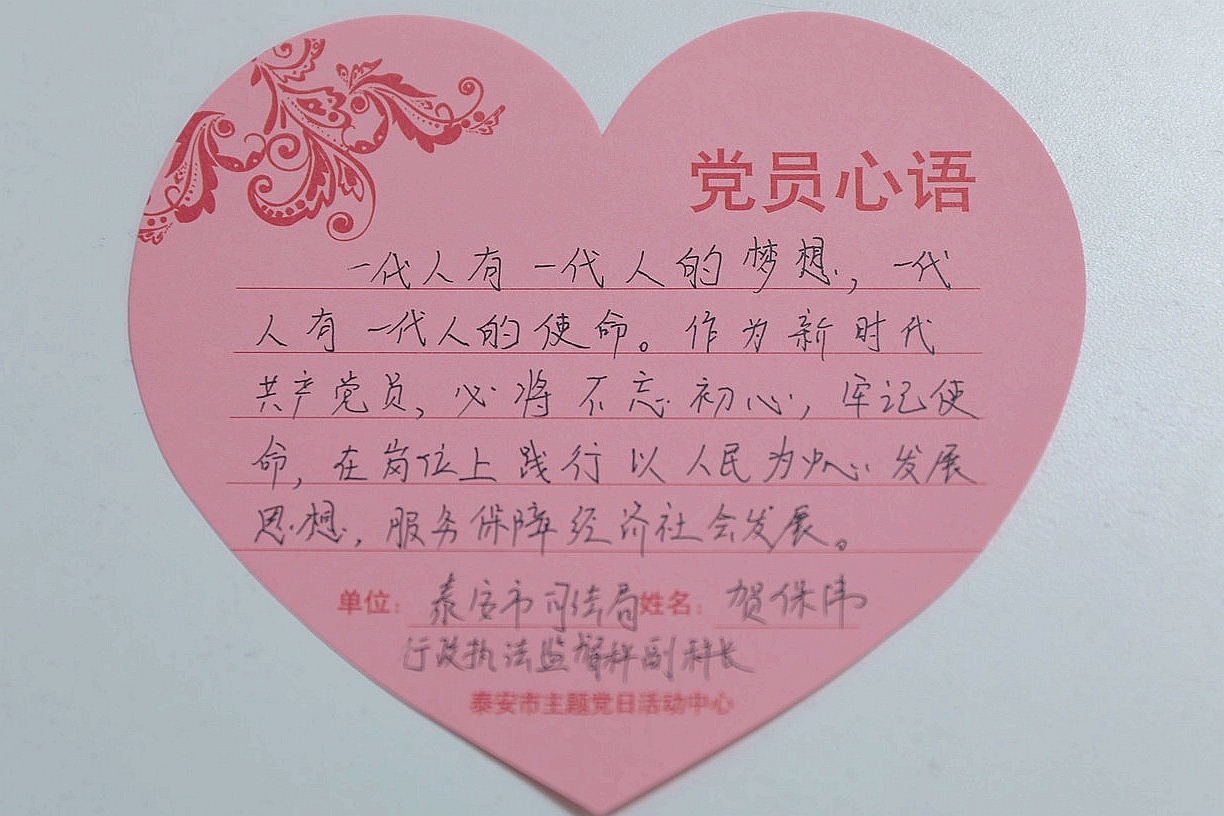 党员心语
一代人有一代人的梦想，一代
人有一代人的使命。作为新时代
共产党员，必将不忘初心，牢记使
命，在岗位上践行以人民为中心发展
思想，服务保障经济社会发展。
单位：泰安市司法局姓名：贺保伟
行政执法监督科副科长
泰安市主题党日活动中心